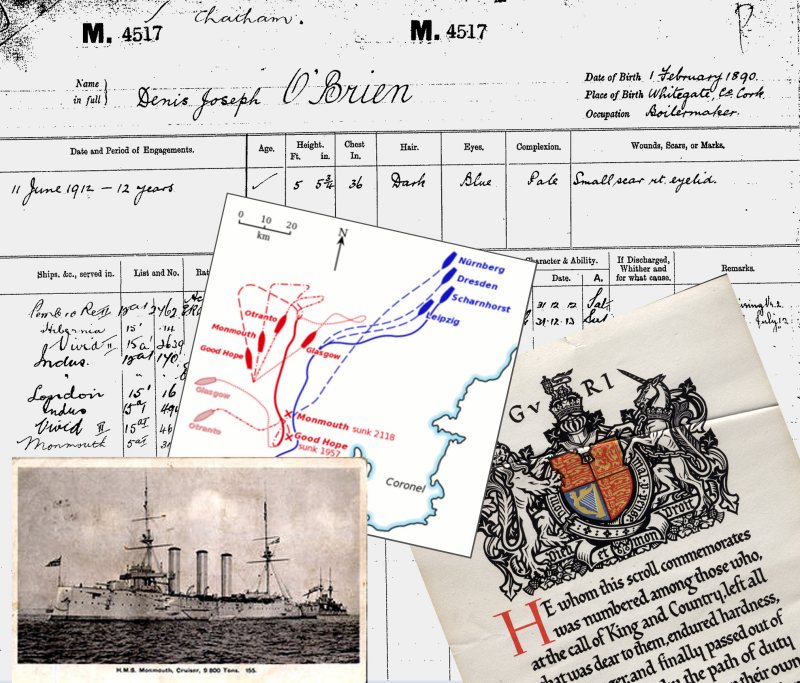 Chatham.
M. 4517
M. 4517
Name in full } Denis Joseph O'Brien
Date of Birth 1 February 1890.
Place of Birth Whitegate, Co. Cork
Occupation Boilermaker.
Date and Period of Engagements.
Age.
Height.
Ft. in.
Chest
In.
Hair.
Eyes.
Complexion.
Wounds, Scars, or Marks.
11 June 1912 — 12 years
5 5¾
36
Dark
Blue
Pale
Small scar rt. eyelid.
Ships, &c., served in.
List and No.
Character & Ability.
Date.
A.
If Discharged,
Whither and
for what cause.
Remarks.
31.12.12 Sat
31.12.13
Hibernia 15'
Vivid II
Indus.
London 15' 16
Indus
Vivid II
Monmouth
0 10 20
km
N
Nürnberg
Dresden
Scharnhorst
Leipzig
Otranto
Monmouth
Good Hope
Glasgow
Glasgow
Otranto
Monmouth sunk 2118
Good Hope
sunk 1957
Coronel
H.M.S. Monmouth, Cruiser, 9800 Tons. 155.
GV RI
Dieu et mon Droit
HE whom this scroll commemorates
was numbered among those who,
at the call of King and Country, left all
that was dear to them, endured hardness,
and finally passed out of
the path of duty
their own